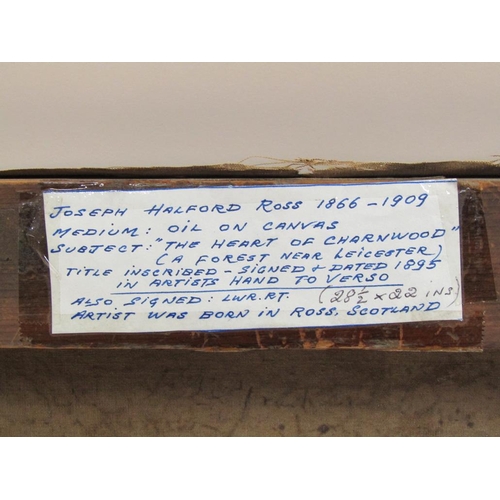 JOSEPH HALFORD ROSS 1866-1909
MEDIUM: OIL ON CANVAS
SUBJECT: "THE HEART OF CHARNWOOD"
(A FOREST NEAR LEICESTER)
TITLE INSCRIBED - SIGNED & DATED 1895
IN ARTISTS HAND TO VERSO
ALSO. SIGNED: LWR.RT. (28½ x 22 INS)
ARTIST WAS BORN IN ROSS, SCOTLAND